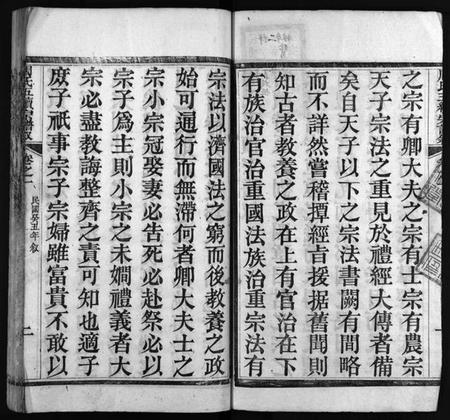 之宗有卿大夫之宗有士宗有農宗
天子宗法之重見於禮經大傳者備
矣自天子以下之宗法書闕有間略
而不詳然嘗稽撢經𠮷援据舊聞則
知古者教養之政在上有官治在下
有族治官治重國法族治重宗法有
宗法以濟國法之窮而後教養之政
始可通行而無滯何者卿大夫士之
宗小宗冠娶妻必告死必赴祭必以
宗子爲主則小宗之未嫺禮義者大
宗必盡教誨整齊之責可知也適子
庶子祇事宗子宗婦雖富貴不敢以
卷之一
民國癸丑年敘
二